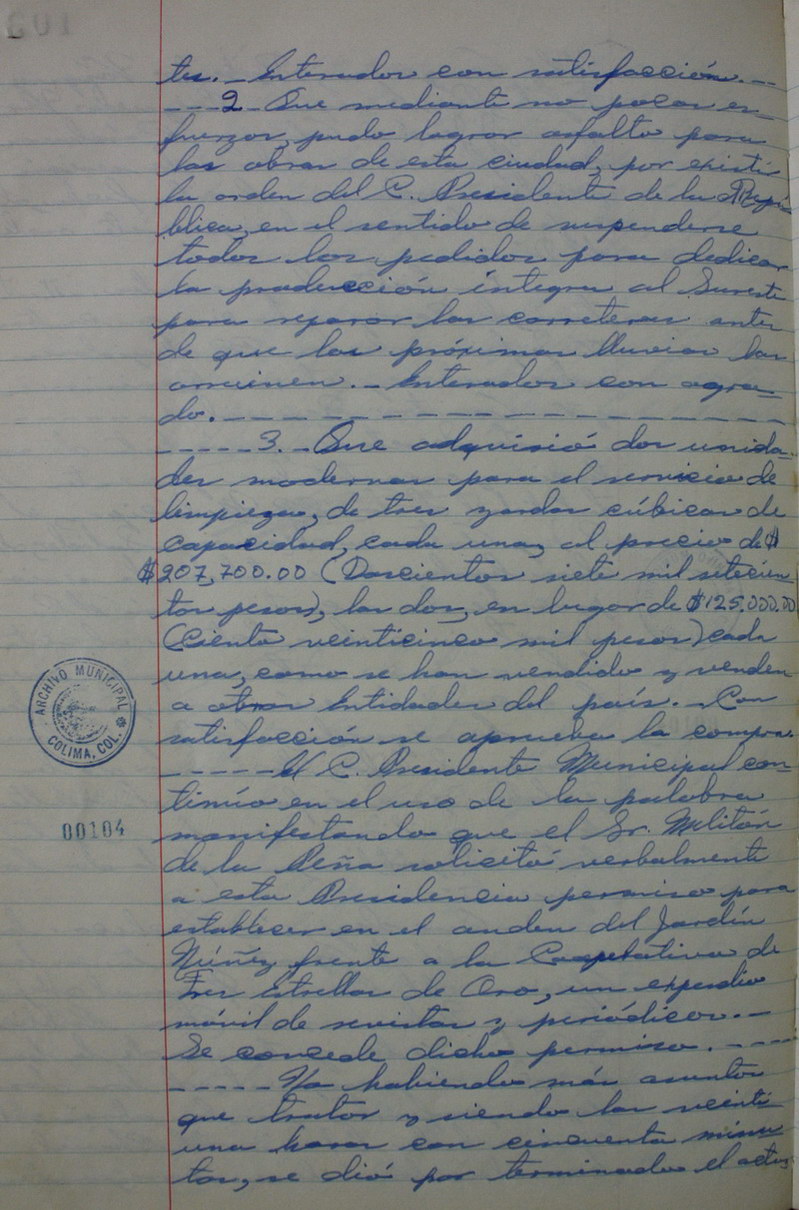 tes. - Enterados con satisfacción. --
---- 2 - Que mediante no pocos es-
fuerzos, pudo lograr asfalto para
las obras de esta ciudad, por existir
la orden del C. Presidente de la Repú-
blica, en el sentido de suspenderse
todos los pedidos para dedicar
la producción íntegra al Sureste
para reparar las carreteras antes
de que las próximas lluvias las
arruinen. - Enterados con agra-
do. - - - - - - - - - - - - - - - - -
----- 3. - Que adquisió dos unida-
des modernas para el servicio de
limpieza, de tres yardas cúbicas de
capacidad, cada una, al precio de $
$207,700.00 (Doscientos siete mil setecien-
tos pesos), las dos, en lugar de $125.000.00
(ciento veinticinco mil pesos) cada
una, como se han vendido y venden
a otras Entidades del país. - Con
satisfacción se aprueba la compra.
----- El C. Presidente Municipal con-
tinúo en el uso de la palabra
manifestando que el Sr. Melitón
de la Peña solicitó verbalmente
a esta Presidencia permiso para
establecer en el anden del Jardín
Núñez frente a la Cooperativa de
Tres Estrellas de Oro, un expendio
móvil de revistas y periódicos. -
Se concede dicho permiso. ----
----- No habiendo más asuntos
que tratar y siendo las veinti
una horas con cincuenta minu
tos, se dió por terminado el acto,
ARCHIVO MUNICIPAL
COLIMA, COL.
00104